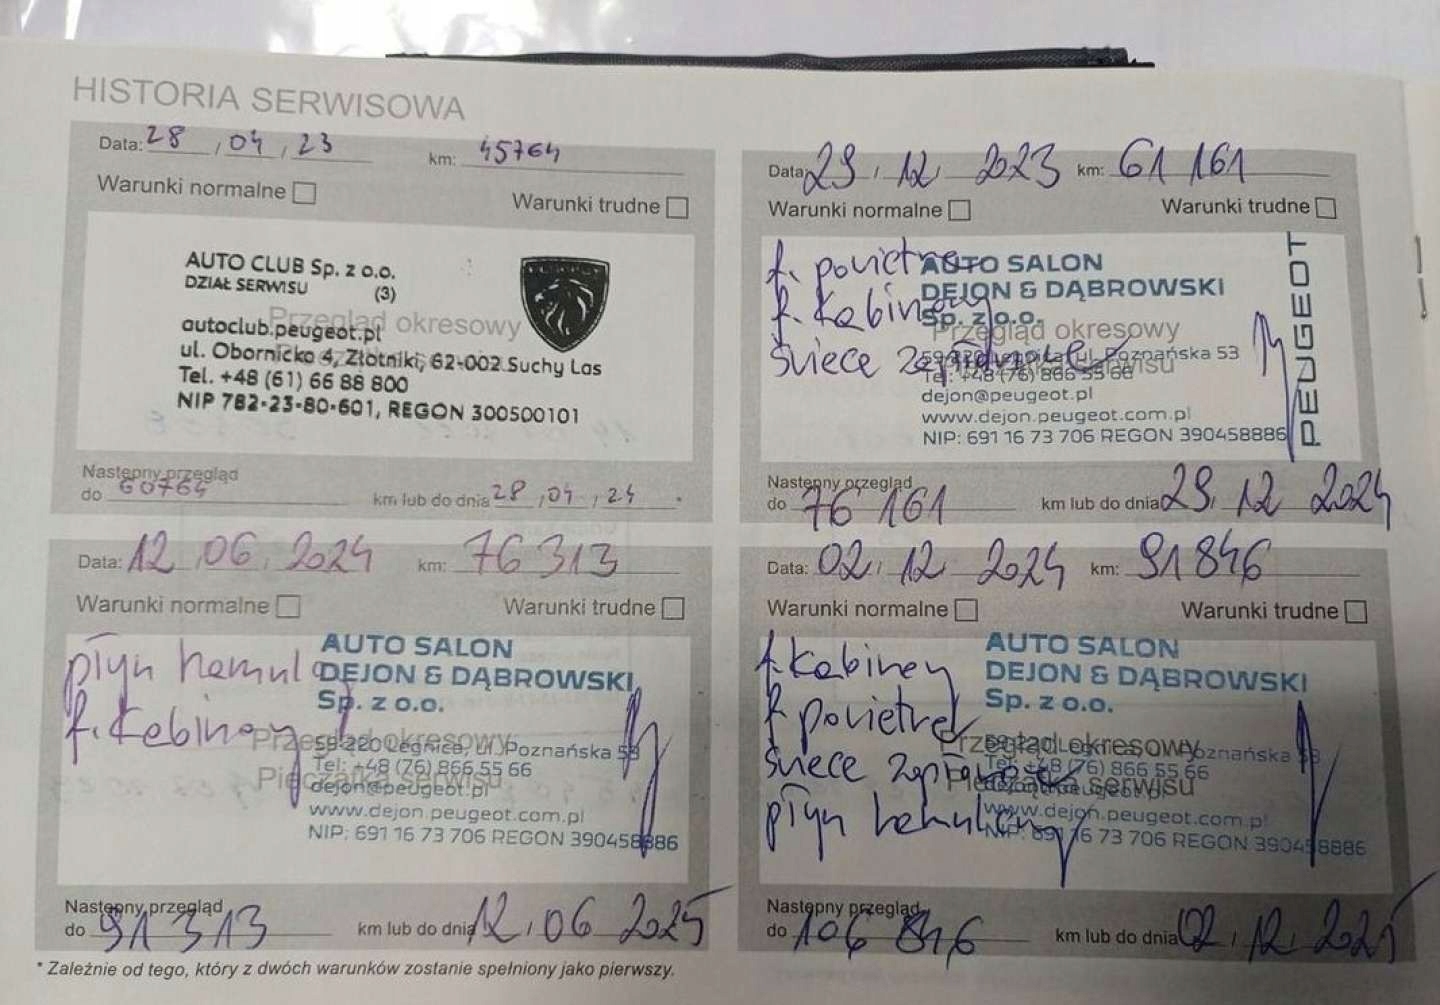 HISTORIA SERWISOWA
Data: 28, 04, 23 km: 45764
Warunki normalne Warunki trudne
AUTO CLUB Sp. z o.o.
DZIAŁ SERWISU (3)
Przegląd okresowy
autoclub.peugeot.pl
ul. Obornicka 4, Złotniki, 62-002 Suchy Las
Tel. +48 (61) 66 88 800
NIP 782-23-80-601, REGON 300500101
Następny przegląd
do 60764 km lub do dnia 28, 04, 24
Data: 29, 12, 2023 km: 61 161
Warunki normalne Warunki trudne
f. powietrza
f. kabinowy
świece zapłonowe
AUTO SALON
DEJON & DĄBROWSKI
Sp. z o.o.
PEUGEOT
Przegląd okresowy
59-220 Legnica, ul. Poznańska 53
Tel: +48 (76) 866 55 66
dejon@peugeot.pl
www.dejon.peugeot.com.pl
NIP: 691 16 73 706 REGON 390458886
Następny przegląd
do 76 161 km lub do dnia 29, 12, 2024
Data: 12, 06, 2024 km: 76 313
Warunki normalne Warunki trudne
płyn hamulc
f. kabinowy
AUTO SALON
DEJON & DĄBROWSKI
Sp. z o.o.
Przegląd okresowy
59-220 Legnica, ul. Poznańska 53
Tel: +48 (76) 866 55 66
Pieczątka serwisu
dejon@peugeot.pl
www.dejon.peugeot.com.pl
NIP: 691 16 73 706 REGON 390458886
Następny przegląd
do 91 313 km lub do dnia 12, 06 2025
Data: 02, 12, 2024 km: 91 846
Warunki normalne Warunki trudne
f. kabinowy
f. powietrza
świece zapłonowe
płyn hamulcowy
AUTO SALON
DEJON & DĄBROWSKI
Sp. z o.o.
Przegląd okresowy
Poznańska 53
Tel: +48 (76) 866 55 66
Pieczątka serwisu
www.dejon.peugeot.com.pl
NIP: 691 16 73 706 REGON 390458886
Następny przegląd
do 106 846 km lub do dnia 02, 12, 2025
* Zależnie od tego, który z dwóch warunków zostanie spełniony jako pierwszy.